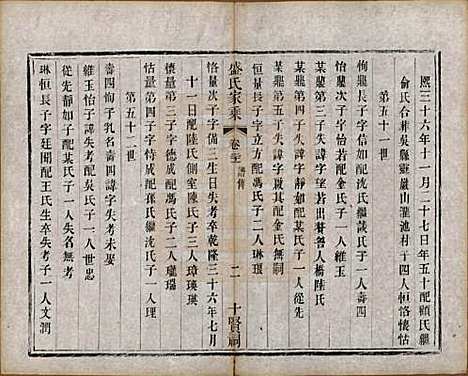 熙三十六年十一月二十七日年五十配顧氏繼
俞氏合葬吳縣靈巖山瀧池村子四人恒恪懷怙
第五十一世
恂龍長子字信如配沈氏繼戴氏子一人壽四
某龍第三子字怡若配金氏子一人維玉
某龍第四子失諱字省月出贅婿人橋陸氏
某龍第五子失諱字靜如配某氏子一人從先
某龍第六子失諱字敗其配金氏無嗣
恒量長子字立方配馮氏子二人琳環
盛氏家乘
卷
譜傳
二
十賢祠
恪量次子字備三生日失考卒乾隆三十六年七月
十一日配陸氏側室 陳氏子三人璋瑛瑛
懷量第三子字德成配馮氏子二人瓏瑞
怙量第四子字時成配孫氏繼沈氏子一人
第五十二世
壽四恂子乳名壽四諱字失考未娶
維玉怡子諱失考配吳氏子一人世忠
從先靜如子配某氏子一人失名無考
琳恒長子字廷聞配王氏生卒失考子一人文潤